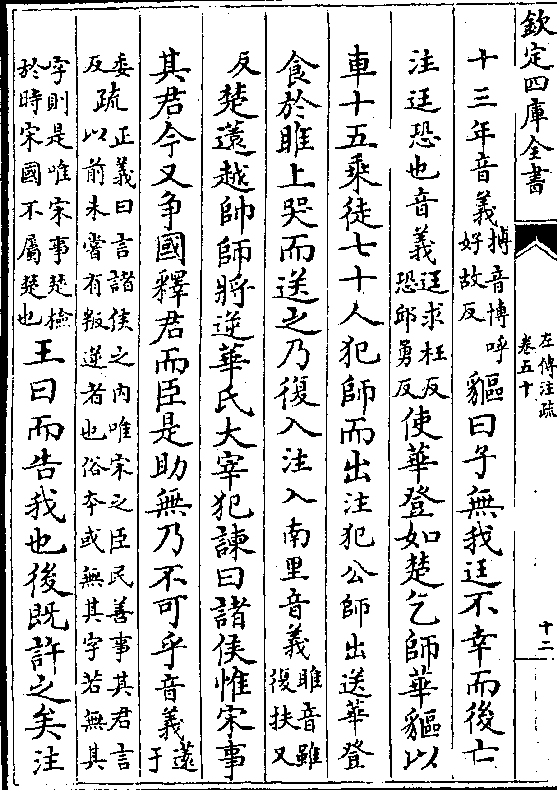 欽定四庫全書
左傳注疏
卷五十
十二
十三年音義搏音博呼
好故反貙曰子無我迋不幸而後亡
注迋恐也音義迋求枉反
恐邱勇反使華登如楚乞師華貙以
車十五乘徒七十人犯師而出注犯公師出送華登
食於睢上哭而送之乃復入注入南里音義睢音雖
復扶又
反楚薳越帥師將逆華氏大宰犯諫曰諸侯惟宋事
其君今又争國釋君而臣是助無乃不可乎音義薳
于
委
反疏正義曰言諸侯之内唯宋之臣民善事其君言
以前未嘗有叛逆者也俗本或無其字若無其
字則是唯宋事楚檢
於時宋國不屬楚也王曰而告我也後既許之矣注